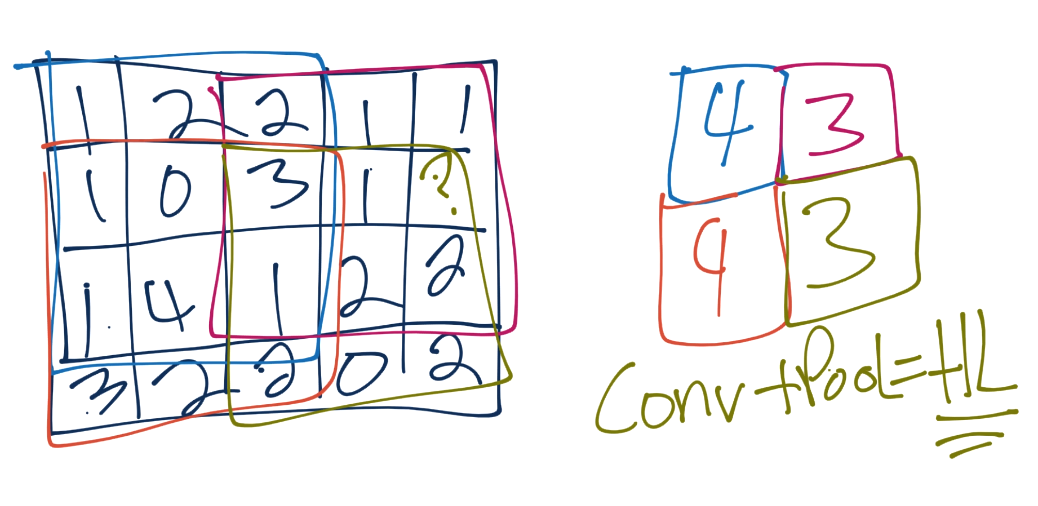 1 2 2 1 1
1 0 3 1 ?
1 4 1 2 2
3 2 2 0 2
4 3
9 3
Conv+Pool=HL